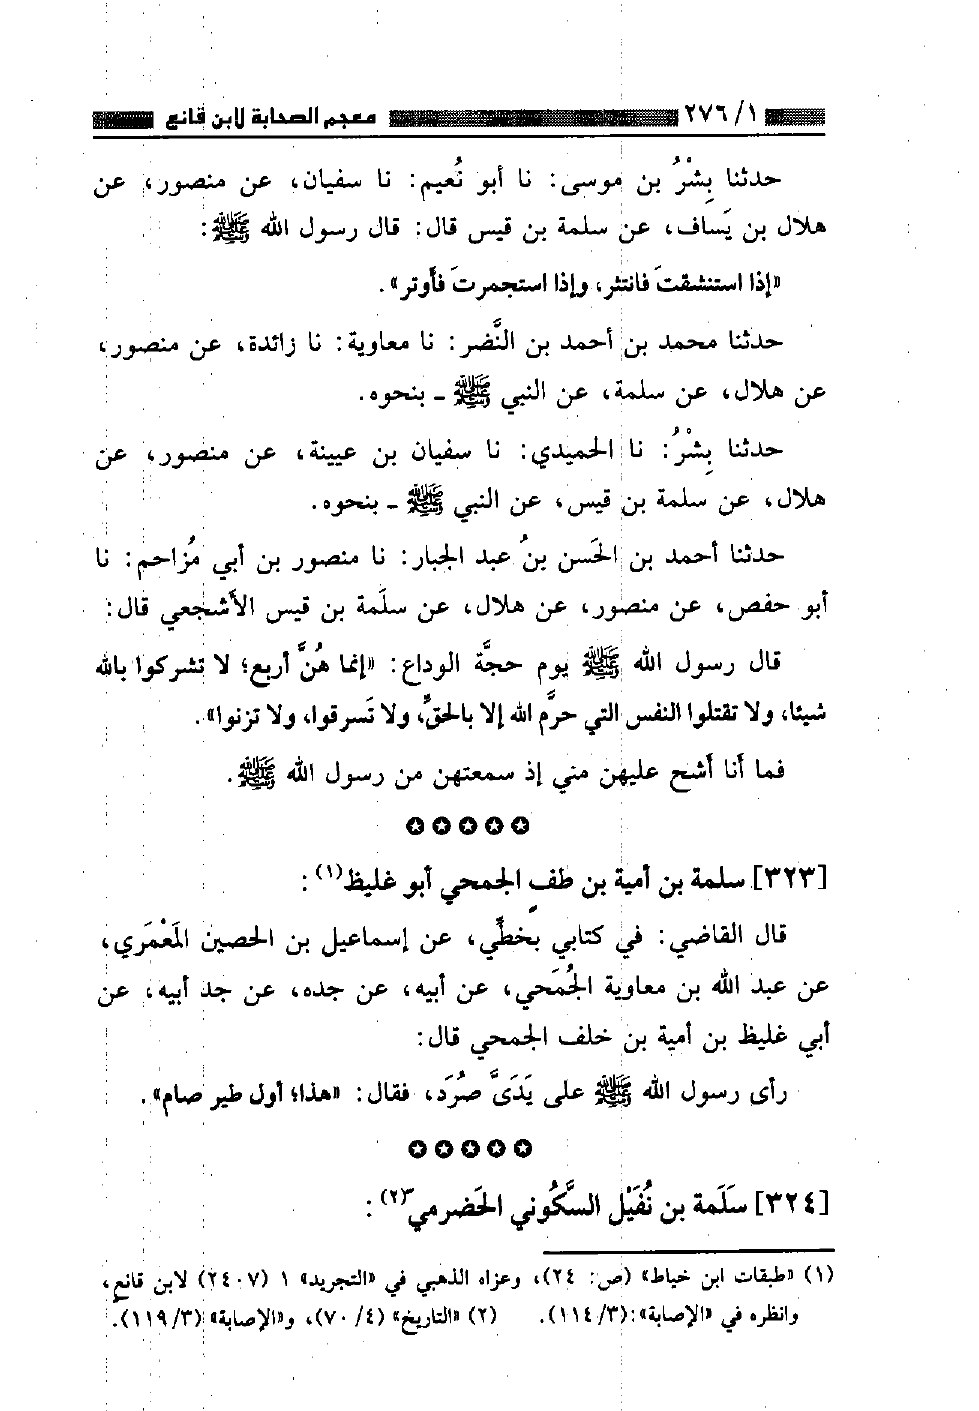 ١/ ٢٧٦ معجم الصحابة لابن قانع
حدثنا بِشْرُ بن موسى: نا أبو نُعيم: نا سفيان، عن منصور، عن
هلال بن يَساف، عن سلمة بن قيس قال: قال رسول الله ﷺ:
«إذا استنشقتَ فانتثر، وإذا استجمرتَ فأوتر».
حدثنا محمد بن أحمد بن النَّضر: نا معاوية: نا زائدة، عن منصور،
عن هلال، عن سلمة، عن النبي ﷺ ـ بنحوه.
حدثنا بِشْرُ: نا الحميدي: نا سفيان بن عيينة، عن منصور، عن
هلال، عن سلمة بن قيس، عن النبي ﷺ ـ بنحوه.
حدثنا أحمد بن الحَسن بنُ عبد الجبار: نا منصور بن أبي مُزاحم: نا
أبو حفص، عن منصور، عن هلال، عن سلَمة بن قيس الأشجعي قال:
قال رسول الله ﷺ يوم حجَّة الوداع: «إنما هُنَّ أربع؛ لا تشركوا بالله
شيئا، ولا تقتلوا النفس التي حرَّم الله إلا بالحقِّ، ولا تَسرقوا، ولا تزنوا».
فما أنا أشح عليهن مني إذ سمعتهن من رسول الله ﷺ.
[٣٢٣] سلمة بن أمية بن طفٍ الجمحي أبو غليظ(١):
قال القاضي: في كتابي بخطِّي، عن إسماعيل بن الحصين المَعْمَري،
عن عبد الله بن معاوية الجُمَحي، عن أبيه، عن جده، عن جد أبيه، عن
أبي غليظ بن أمية بن خلف الجمحي قال:
رأى رسول الله ﷺ على يَدَىَّ صُرَد، فقال: «هذا؛ أول طير صام».
[٣٢٤] سَلَمة بن نُفَيْل السَّكُوني الحَضرمي(٢):
(١) «طبقات ابن خياط» (ص: ٢٤)، وعزاه الذهبي في «التجريد» ١ (٢٤٠٧) لابن قانع،
وانظره في «الإصابة»: (٣/ ١١٤). (٢) «التاريخ» (٤/ ٧٠)، و«الإصابة» (٣/ ١١٩).